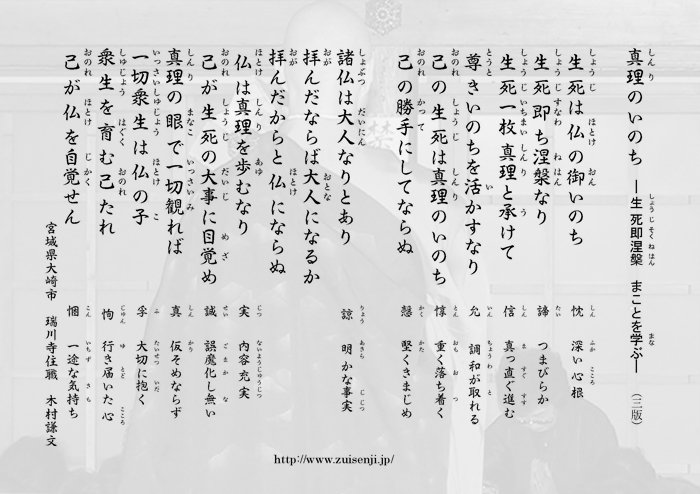 真理のいのち ―生死即涅槃 まことを学ぶ― (三版)
生死は仏の御いのち
生死即ち涅槃なり
生死一枚 真理と承けて
尊きいのちを活かすなり
己の生死は真理のいのち
己の勝手にしてならぬ
諸仏は大人なりとあり
拝んだならば大人になるか
拝んだからと仏にならぬ
仏は真理を歩むなり
己が生死の大事に目覚め
真理の眼で一切観れば
一切衆生は仏の子
衆生を育む己たれ
己が仏を自覚せん
忱 深い心根
諦 つまびらか
信 真っ直ぐ進む
允 調和が取れる
惇 重く落ち着く
愨 堅くきまじめ
諒 明かな事実
実 内容充実
誠 誤魔化し無い
真 仮そめならず
孚 大切に抱く
恂 行き届いた心
悃 一途な気持ち
宮城県大崎市 瑞川寺住職 木村謙文
http://www.zuisenji.jp/